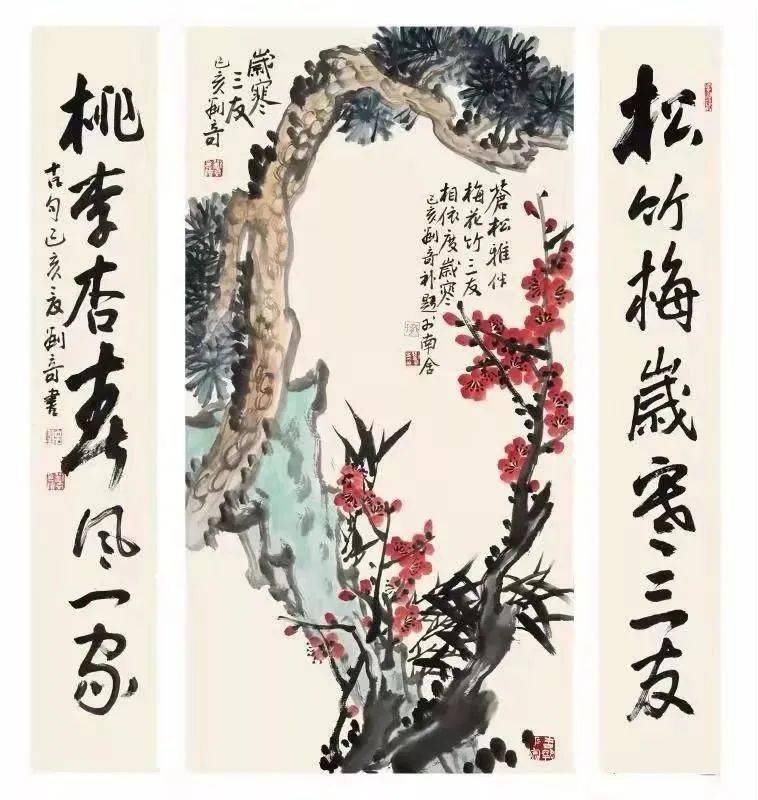 松竹梅歲寒三友
蒼松雅伴
梅花竹三友
相依度歲寒
己亥劉奇補題於南舍
歲寒
三友
己亥劉奇
桃李杏春風一家
古句己亥夏劉奇書